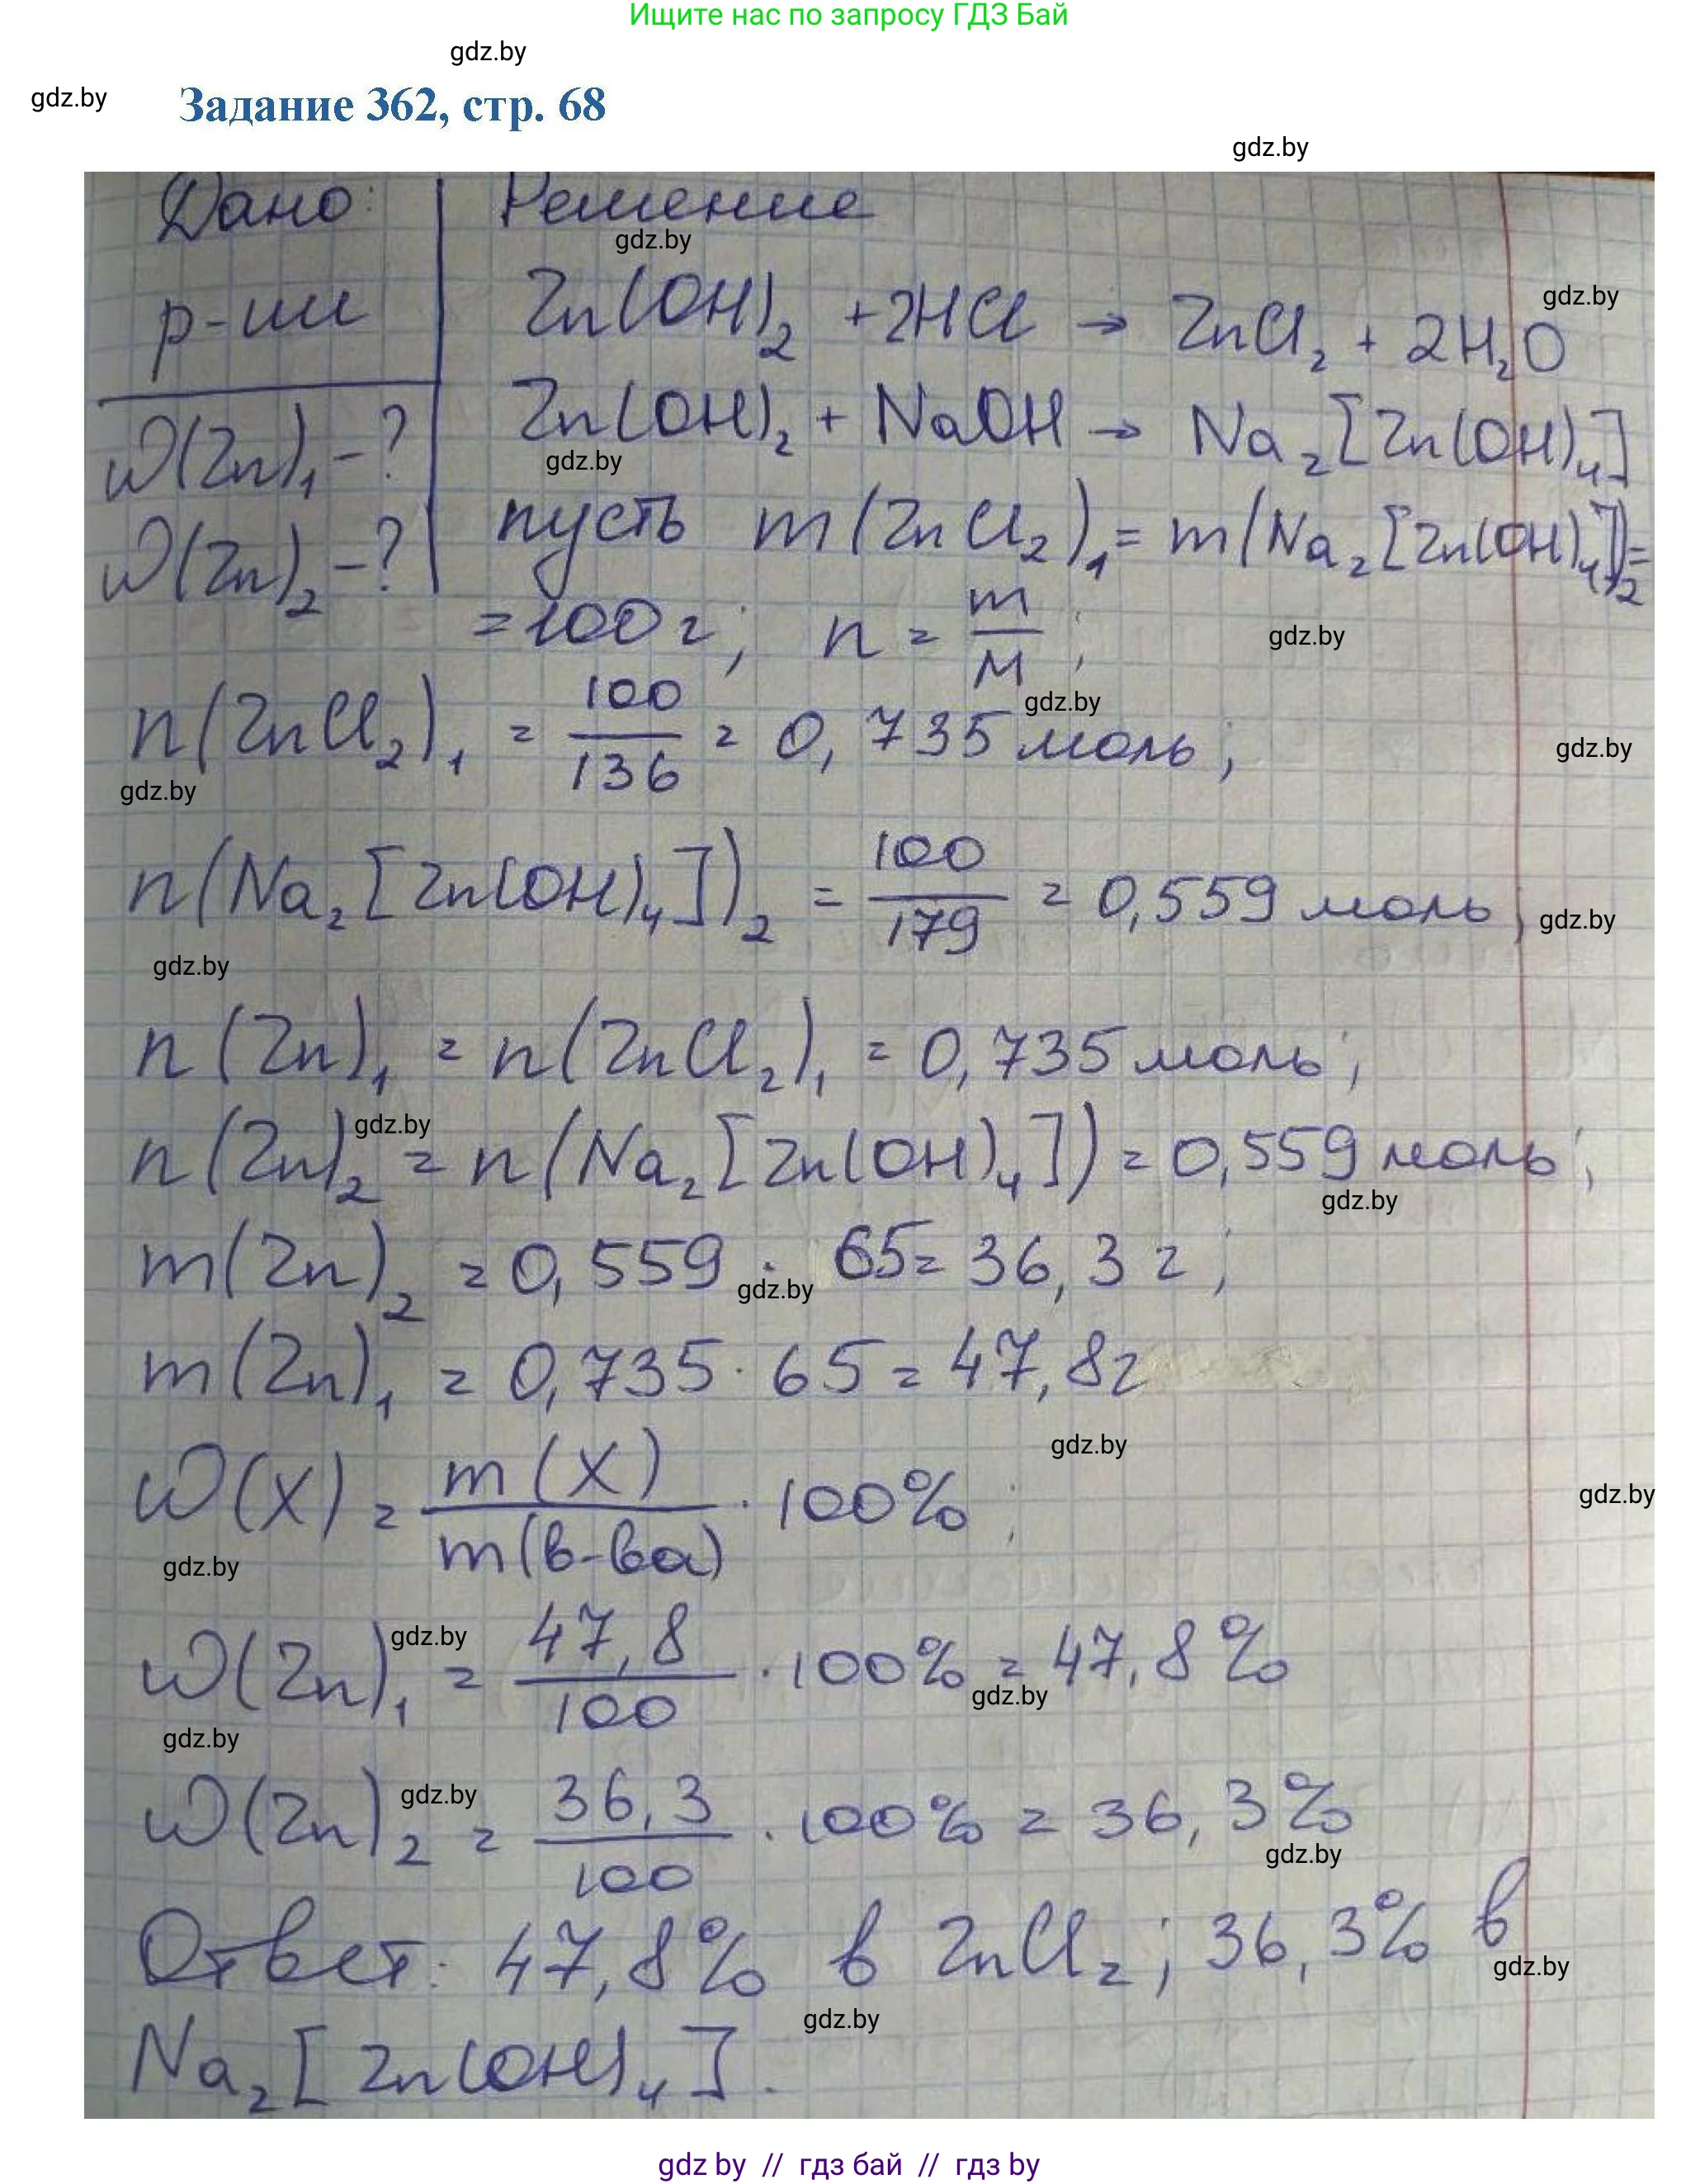 Ищите нас по запросу ГДЗ Бай
gdz.by
gdz.by
Задание 362, стр. 68
gdz.by
Дано: Решение
gdz.by
р-ии Zn(OH)₂ + 2HCl → ZnCl₂ + 2H₂O
gdz.by
ω(Zn)₁ - ? Zn(OH)₂ + NaOH → Na₂[Zn(OH)₄]
gdz.by
ω(Zn)₂ - ? пусть m(ZnCl₂)₁ = m(Na₂[Zn(OH)₄])₂ =
= 100 г; n = m/M;
gdz.by
gdz.by
n(ZnCl₂)₁ = 100/136 = 0,735 моль;
gdz.by
gdz.by
n(Na₂[Zn(OH)₄])₂ = 100/179 = 0,559 моль;
gdz.by
gdz.by
n(Zn)₁ = n(ZnCl₂)₁ = 0,735 моль;
gdz.by
n(Zn)₂ = n(Na₂[Zn(OH)₄]) = 0,559 моль;
gdz.by
m(Zn)₂ = 0,559 · 65 = 36,3 г;
gdz.by
m(Zn)₁ = 0,735 · 65 = 47,8 г
gdz.by
ω(X) = m(X)/m(в-ва) · 100%;
gdz.by
gdz.by
gdz.by
ω(Zn)₁ = 47,8/100 · 100% = 47,8%
gdz.by
gdz.by
gdz.by
ω(Zn)₂ = 36,3/100 · 100% = 36,3%
gdz.by
Ответ: 47,8% в ZnCl₂; 36,3% в
gdz.by
gdz.by
Na₂[Zn(OH)₄].
gdz by // гдз бай // гдз by